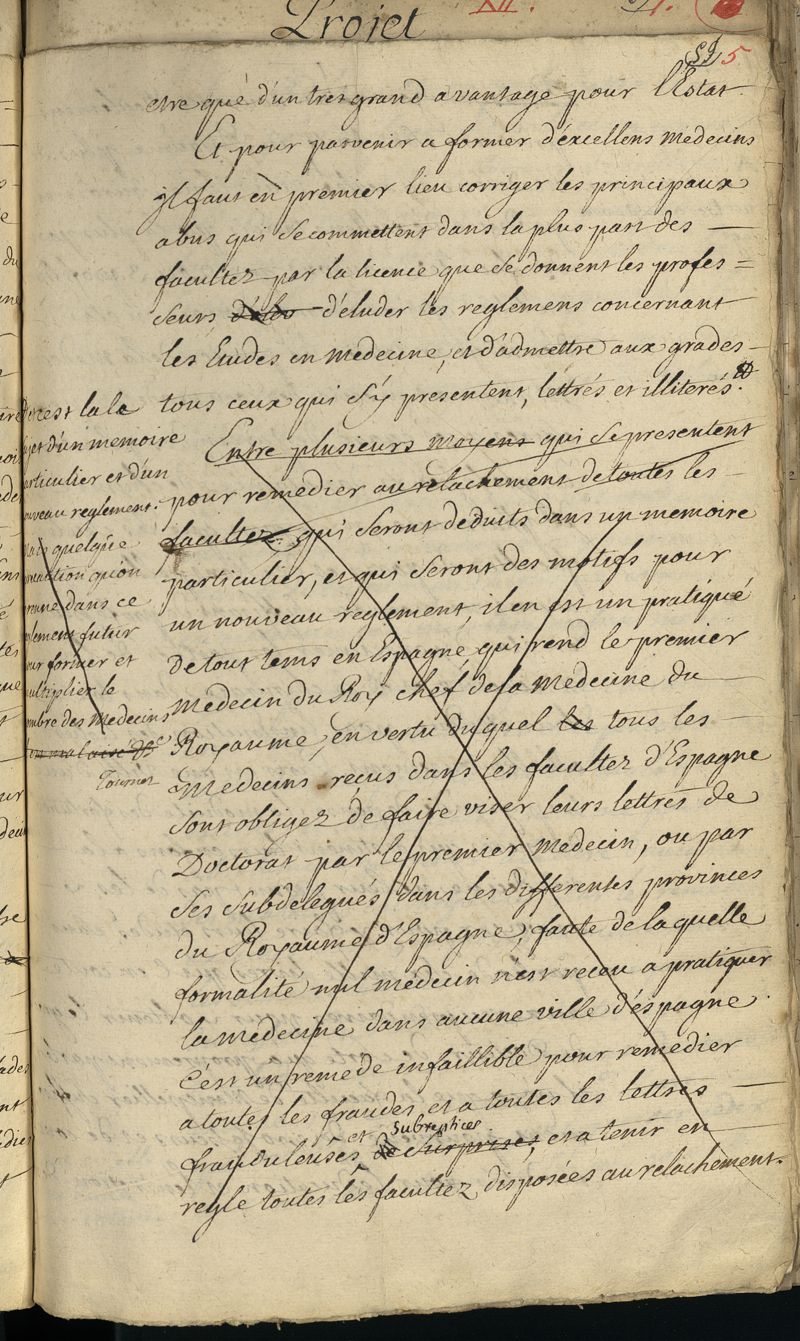 Projet
XII.
5
etre que d'un tres grand avantage pour l'Estat
Et pour parvenir a former d'éxcellens medecins
jl faut en premier lieu corriger les principaux
abus qui se commettent dans la plus part des —
facultez par la licence que se donnent les profes=
seurs d'éluder les reglemens concernant
les Etudes en medecine, et d'admettre aux grades —
tous ceux qui s'y presentent, lettrés et illiterés.
Entre plusieurs moyens qui se presentent
pour remedier au relachement de toutes les —
facultez, qui seront deduits dans un memoire
particulier, et qui seront des motifs pour
un nouveau reglement, il en est un pratiqué
de tout tems en Espagne qui rend le premier
medecin du Roy chef de la medecine du —
Royaume, en vertu duquel les tous les —
medecins reçus dans les facultez d'Espagne
sont obligez de faire viser leurs lettres de
Doctorat par le premier medecin, ou par
ses subdelegués dans les differentes provinces
du Royaume d'Espagne, faute de laquelle
formalité nul medecin n'est receu a pratiquer
la medecine dans aucune ville d'éspagne.
C'est un remede infaillible pour remedier
a toutes les fraudes, et a toutes les lettres —
subreptices
frauduleuses et de surprises, et a tenir en
regle toutes les facultez disposées au relachement.
c'est la le
d'un memoire
particulier et d'un
nouveau reglement.
mais quelque
qu'on
dans ce
reglement futur
pour former et
multiplier le
nombre des medecins
Tournez